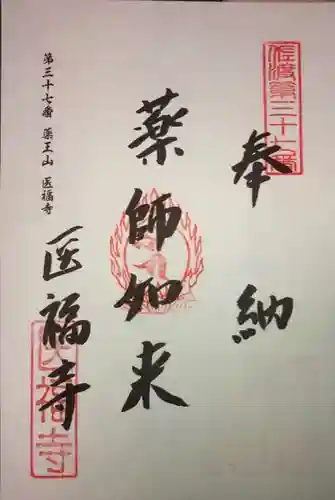 奉納
佐渡第三十七番
薬師如来
医福寺
医福寺
第三十七番 薬王山 医福寺